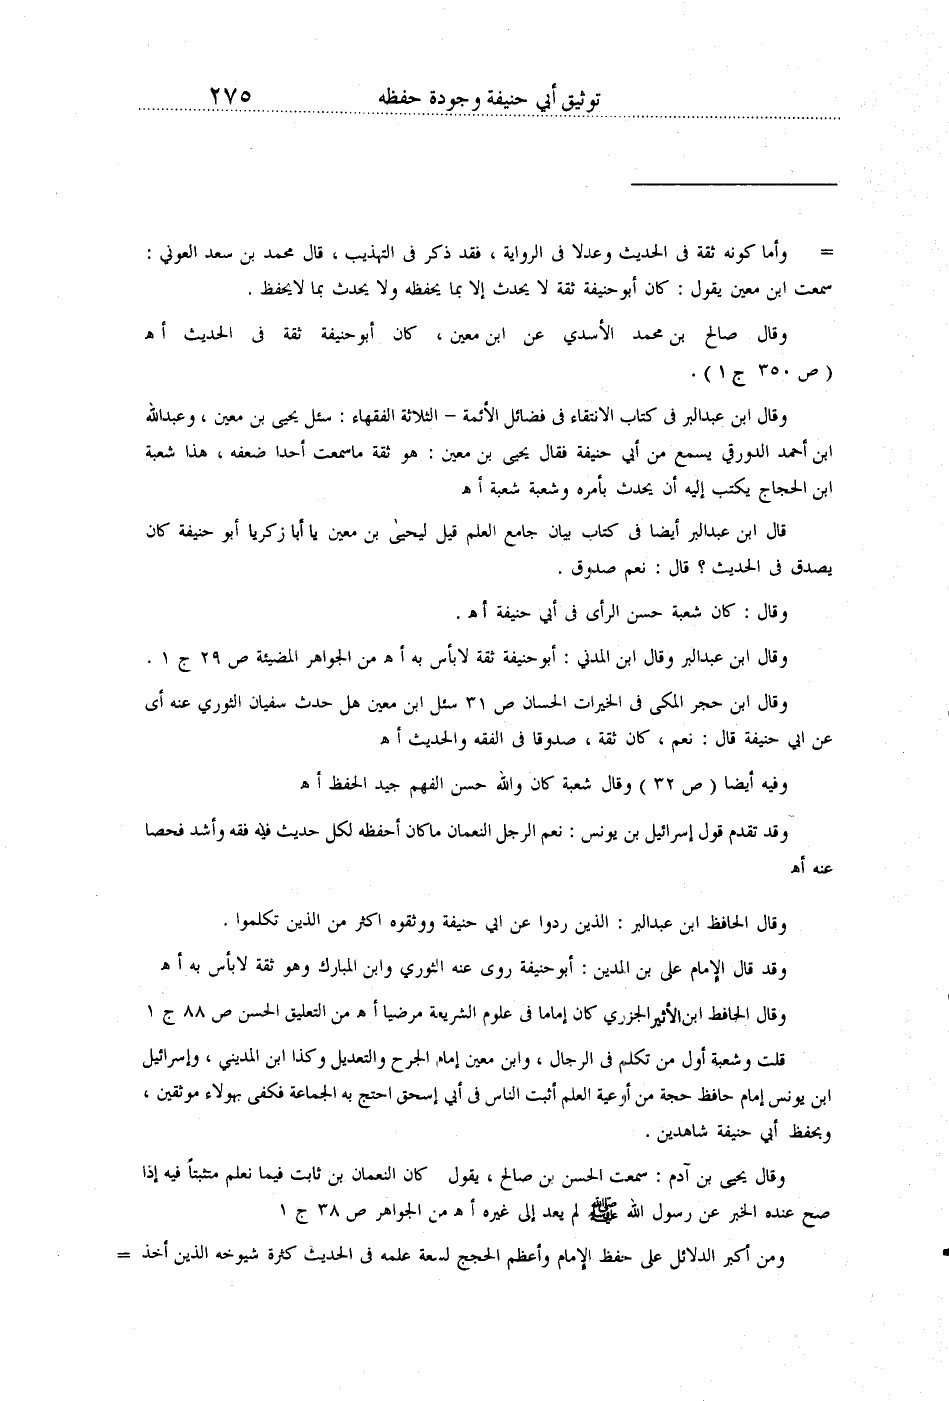 توثيق أبي حنيفة وجودة حفظه ٢٧٥
= وأما كونه ثقة فى الحديث وعدلا فى الرواية ، فقد ذكر فى التهذيب ، قال محمد بن سعد العوني :
سمعت ابن معين يقول : كان أبوحنيفة ثقة لا يحدث إلا بما يحفظه ولا يحدث بما لايحفظ .
وقال صالح بن محمد الأسدي عن ابن معين ، كان أبوحنيفة ثقة فى الحديث أ ه
( ص ٣٥٠ ج ١ ) .
وقال ابن عبدالبر فى كتاب الانتقاء فى فضائل الأئمة – الثلاثة الفقهاء : سئل يحيى بن معين ، وعبدالله
ابن أحمد الدورقي يسمع من أبي حنيفة فقال يحيى بن معين : هو ثقة ماسمعت أحدا ضعفه ، هذا شعبة
ابن الحجاج يكتب إليه أن يحدث بأمره وشعبة شعبة أ ه
قال ابن عبدالبر أيضا فى كتاب بيان جامع العلم قيل ليحيىٰ بن معين يا أبا زكريا أبو حنيفة كان
يصدق فى الحديث ؟ قال : نعم صدوق .
وقال : كان شعبة حسن الرأى فى أبي حنيفة أ ه .
وقال ابن عبدالبر وقال ابن المدني : أبوحنيفة ثقة لابأس به أ ه من الجواهر المضيئة ص ٢٩ ج ١ .
وقال ابن حجر المكى فى الخيرات الحسان ص ٣١ سئل ابن معين هل حدث سفيان الثوري عنه أى
عن ابي حنيفة قال : نعم ، كان ثقة ، صدوقا فى الفقه والحديث أ ه
وفيه أيضا ( ص ٣٢ ) وقال شعبة كان والله حسن الفهم جيد الحفظ أ ه
وقد تقدم قول إسرائيل بن يونس : نعم الرجل النعمان ماكان أحفظه لكل حديث فيه فقه وأشد فحصا
عنه أه
وقال الحافظ ابن عبدالبر : الذين ردوا عن ابي حنيفة ووثقوه اكثر من الذين تكلموا .
وقد قال الإمام على بن المدين : أبوحنيفة روى عنه الثوري وابن المبارك وهو ثقة لابأس به أ ه
وقال الحافظ ابن الأثير الجزري كان إماما فى علوم الشريعة مرضيا أ ه من التعليق الحسن ص ٨٨ ج ١
قلت وشعبة أول من تكلم فى الرجال ، وابن معين إمام الجرح والتعديل وكذا ابن المديني ، وإسرائيل
ابن يونس إمام حافظ حجة من أوعية العلم أثبت الناس فى أبي إسحق احتج به الجماعة فكفى بهولاء موثقين ،
وبحفظ أبي حنيفة شاهدين .
وقال يحيى بن آدم : سمعت الحسن بن صالح ، يقول كان النعمان بن ثابت فيما نعلم متثبتاً فيه إذا
صح عنده الخبر عن رسول الله ﷺ لم يعد إلى غيره أ ه من الجواهر ص ٣٨ ج ١
ومن أكبر الدلائل على حفظ الإمام وأعظم الحجج لسعة علمه فى الحديث كثرة شيوخه الذين أخذ =